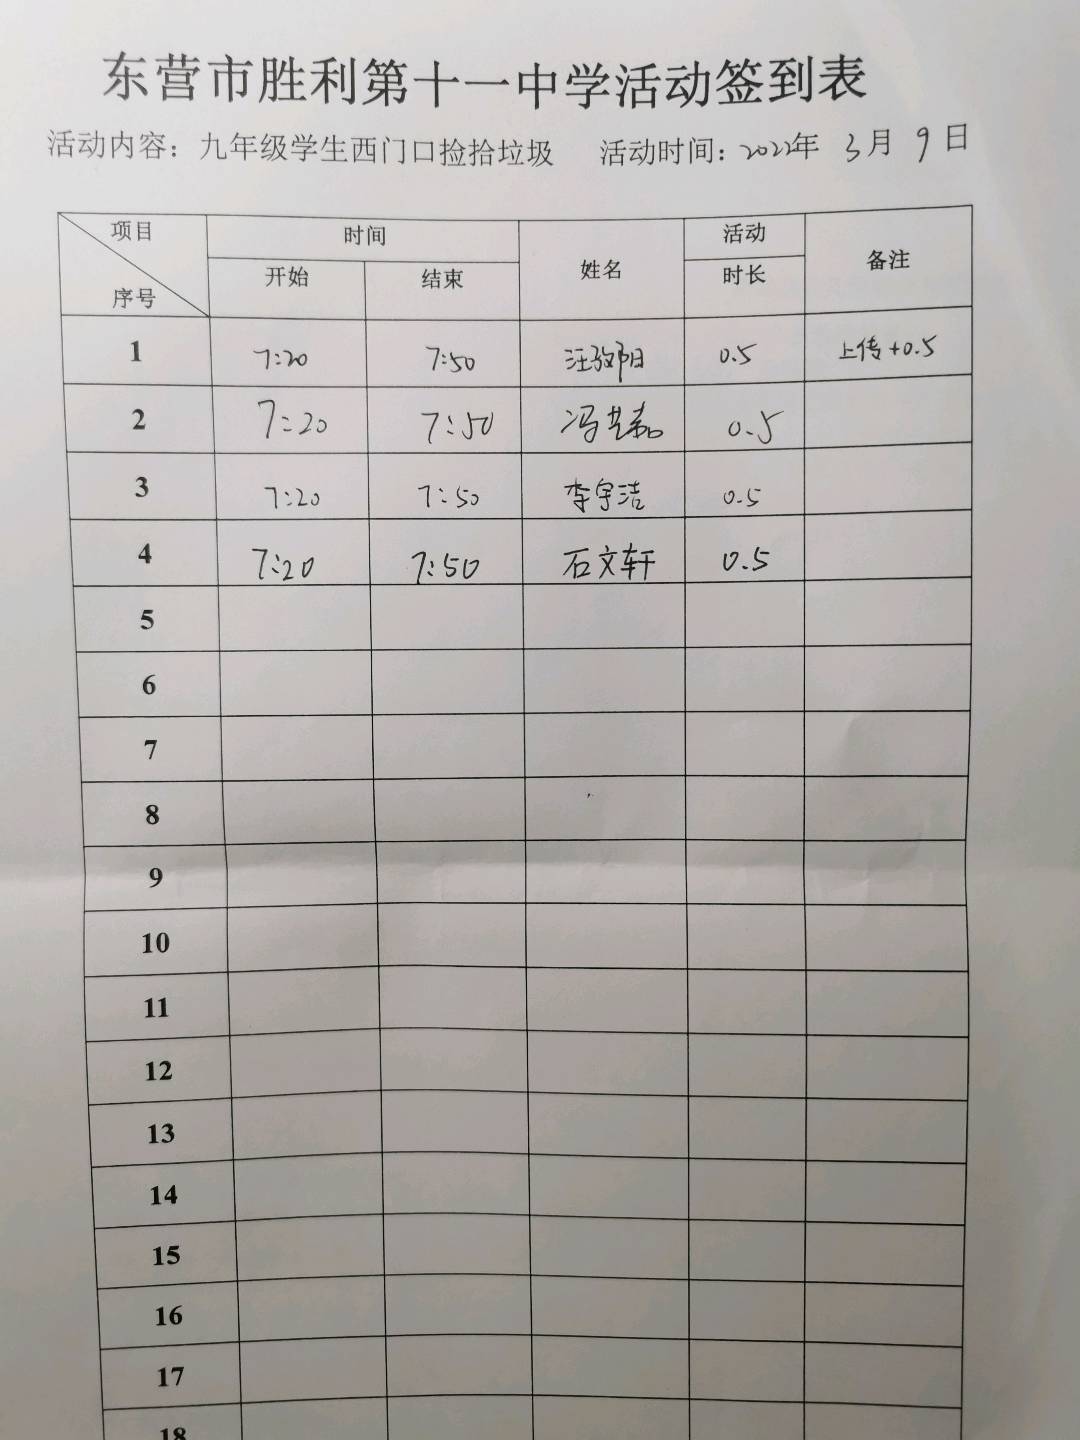 东营市胜利第十一中学活动签到表
活动内容：九年级学生西门口捡拾垃圾 活动时间：2022年 3月 9日
项目 时间 姓名 活动 备注
序号 开始 结束 时长
1 7:20 7:50 汪孜阳 0.5 上传+0.5
2 7:20 7:50 冯 0.5
3 7:20 7:50 李宇洁 0.5
4 7:20 7:50 石文轩 0.5
5
6
7
8
9
10
11
12
13
14
15
16
17
18